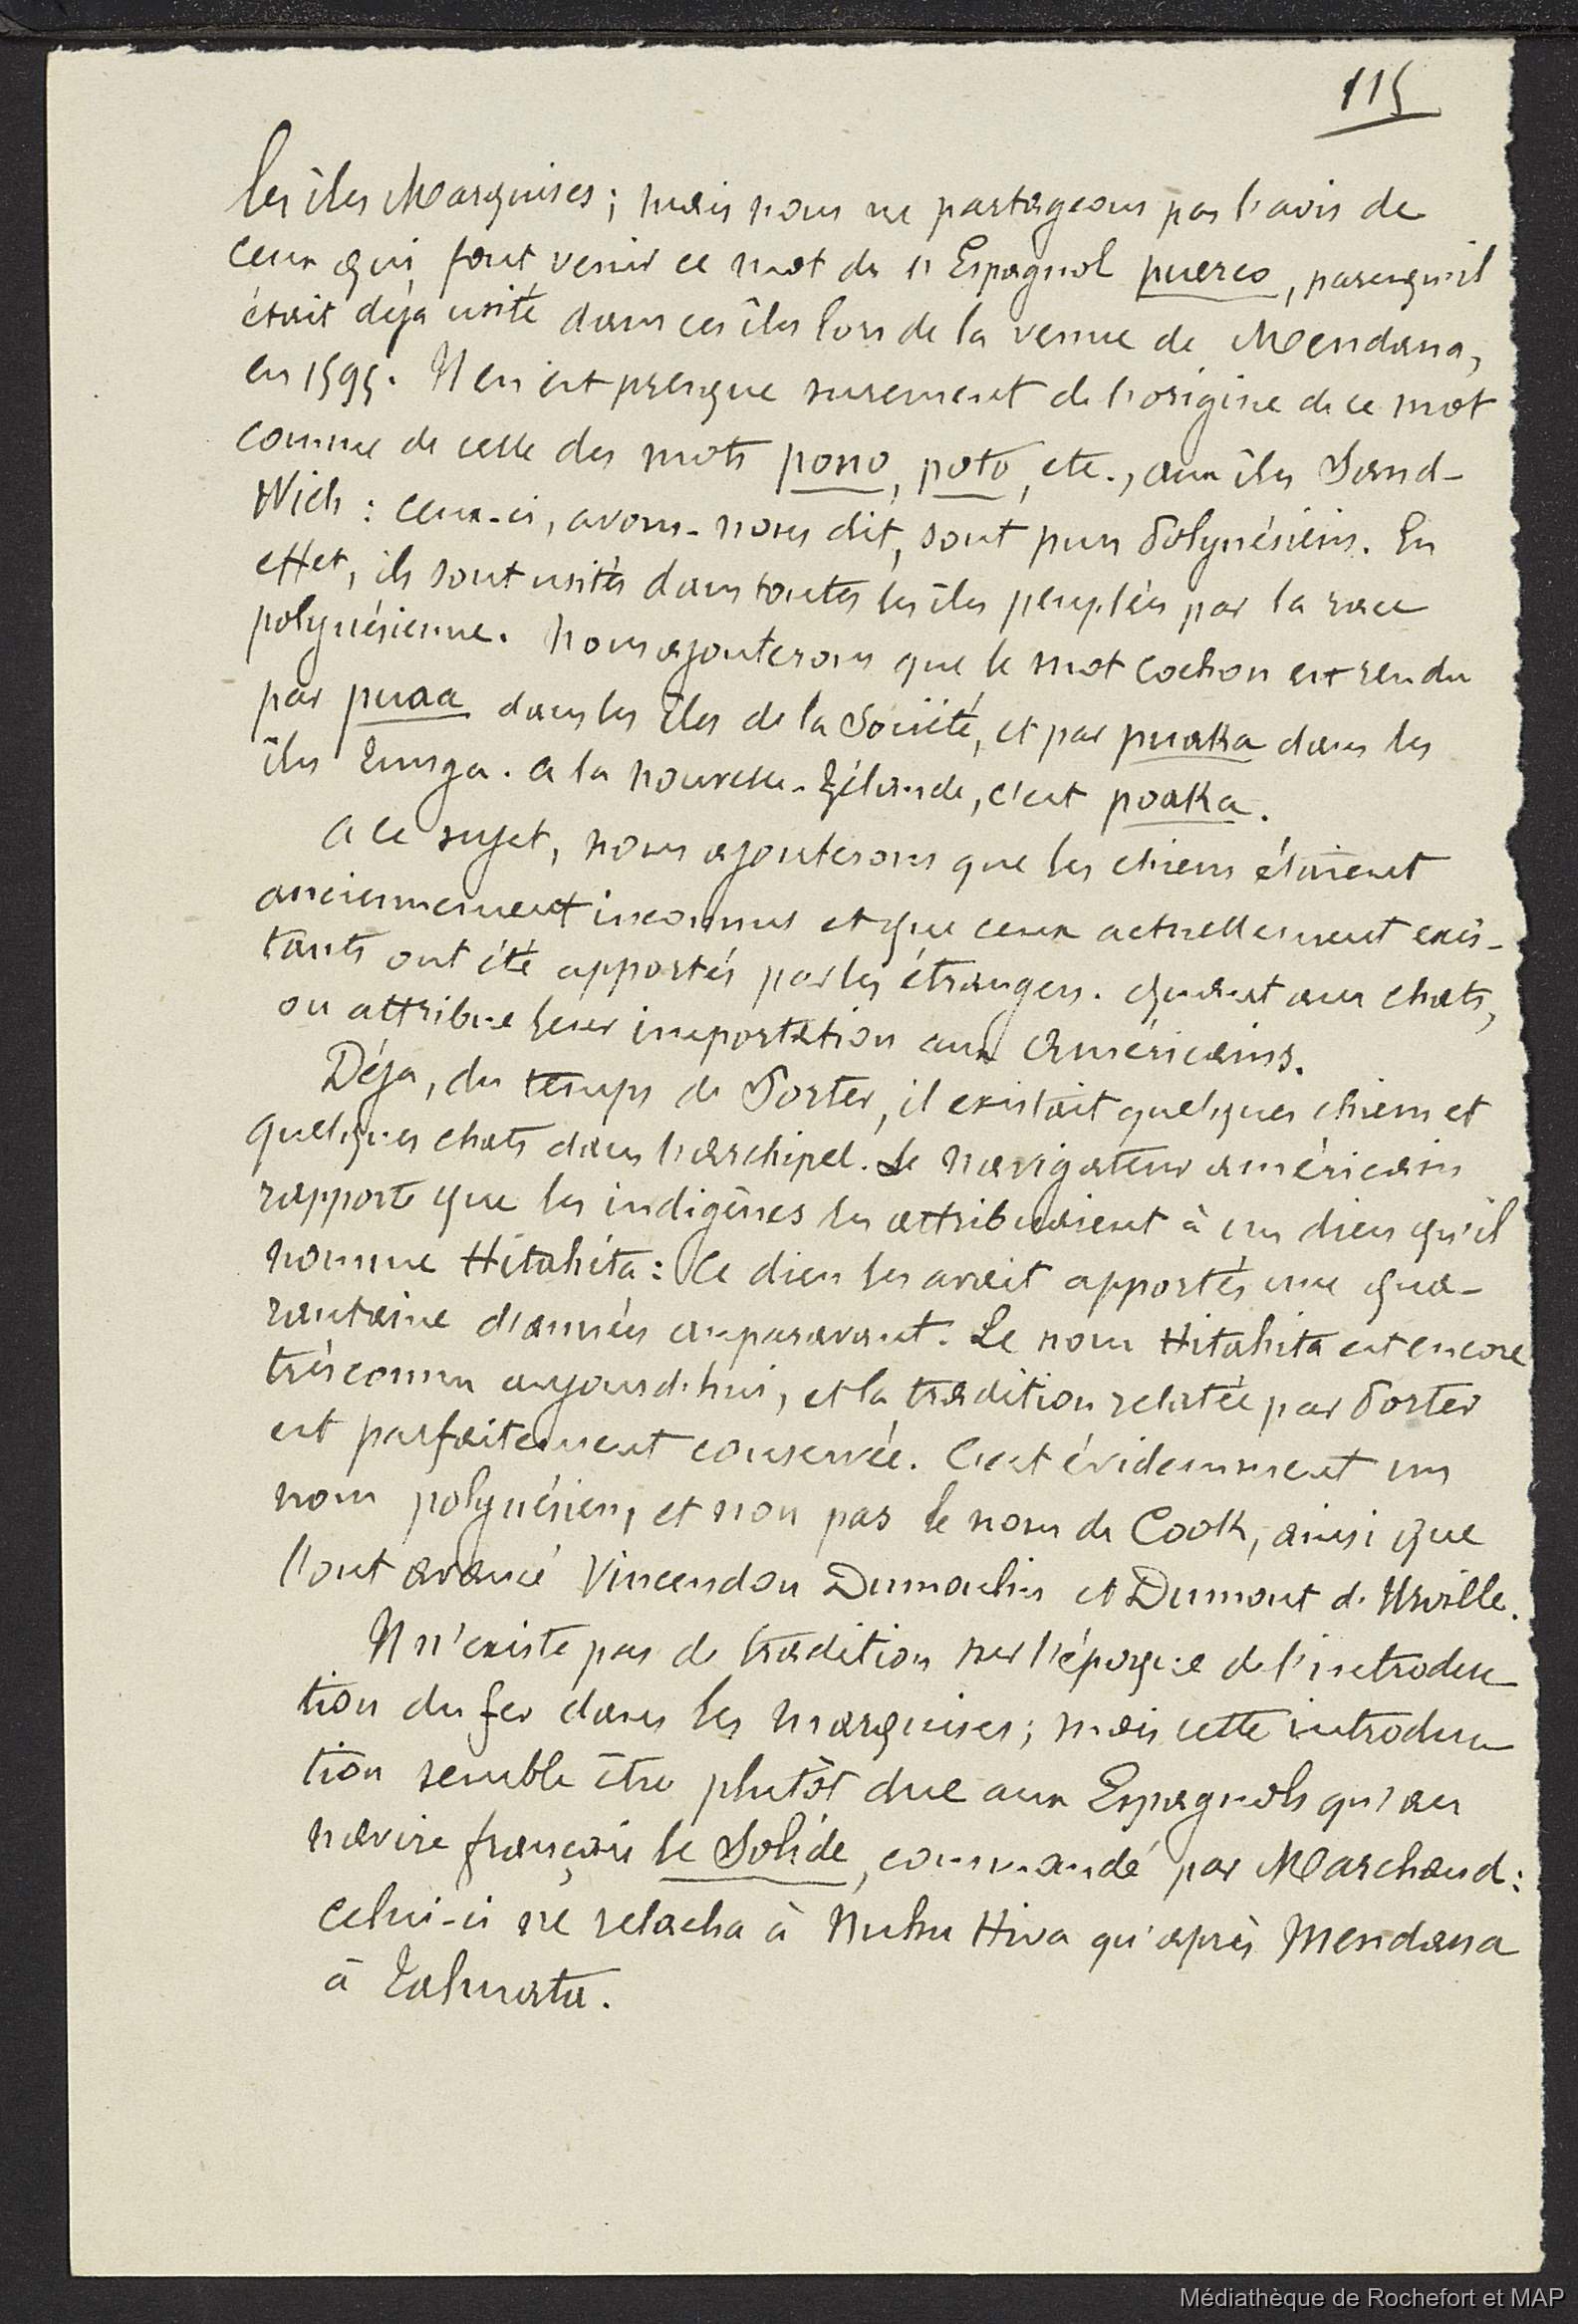 115
les îles Marquises ; mais nous ne partageons pas l'avis de
ceux qui font venir ce mot de l'Espagnol puerco, parcequ'il
était déja usité dans ces îles lors de la venue de Mendana,
en 1595. Il en est presque surement de l'origine de ce mot
comme de celle des mots pono, poto, etc., aux îles Sand-
Wich : ceux-ci, avons-nous dit, sont purs Polynésiens. En
effet, ils sont usités dans toutes les îles peuplées par la race
polynésienne. Nous ajouterons que le mot cochon est rendu
par puaa dans les îles de la Société, et par puaka dans les
îles Tunga. A la Nouvelle-Zélande, c'est poaka.
A ce sujet, nous ajouterons que les chiens étaient
anciennement inconnus et que ceux actuellement exis-
tants ont été apportés par les étrangers. Quant aux chats,
on attribue leur importation aux Américains.
Déja, du temps de Porter, il existait quelques chiens et
quelques chats dans l'archipel. Le navigateur américain
rapporte que les indigènes les attribuaient à un dieu qu'il
nomme Hitahita : Ce dieu les avait apportés une qua-
rantaine d'années auparavant. Le nom Hitahita est encore
très connu aujourd'hui, et la tradition relatée par Porter
est parfaitement conservée. C'est évidemment un
nom polynésien, et non pas le nom de Cook, ainsi que
l'ont avancé Vincendon Dumoulin et Dumont d'Urville.
Il n'existe pas de tradition sur l'époque de l'introduc
tion du fer dans les Marquises ; mais cette introduc
tion semble être plutôt due aux Espagnols qu'au
navire français le Solide, commandé par Marchand :
celui-ci ne relacha à Nuku Hiva qu'après Mendana
à Tahuata.
Médiathèque de Rochefort et MAP